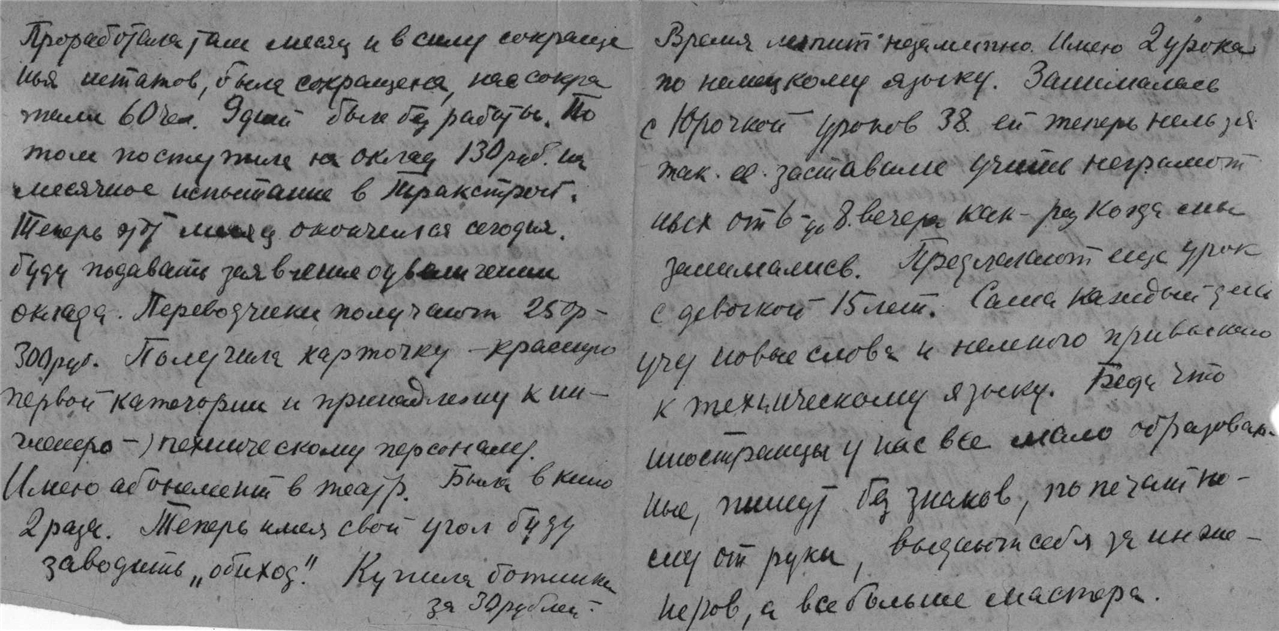 Проработала там месяц и в силу сокраще
нья штатов, была сокращена, нас сокра
тили 60 чел. 9 дней была без работы. По
том поступила на оклад 130 руб. на
месячное испытание в Тракстрой.
Теперь этот месяц окончился сегодня.
буду подавать заявление о увеличении
оклада. Переводчики получают 250р-
300 руб. Получила карточку - красную
первой категории и принадлежу к ин-
женеро-техническому персоналу.
Имею абонемент в театр. Была в кино
2 раза. Теперь имея свой угол буду
заводить „обиход". Купила ботинки
за 30 рублей.
Время летит незаметно. Имею 2 урока
по немецкому языку. Занималась
с Юрочкой уроков 38. ей теперь нельзя
так. ее. заставили учить неграмот
ных от 6 до 8. вечера как-раз когда мы
занимались. Предлагают еще урок
с девочкой 15 лет. Сама каждый день
учу новые слова и немного привыкаю
к техническому языку. Беда что
иностранцы у нас все мало образован-
ные, пишут без знаков, по печатно-
му от руки, выдают себя за инже-
неров, а все больше мастера.